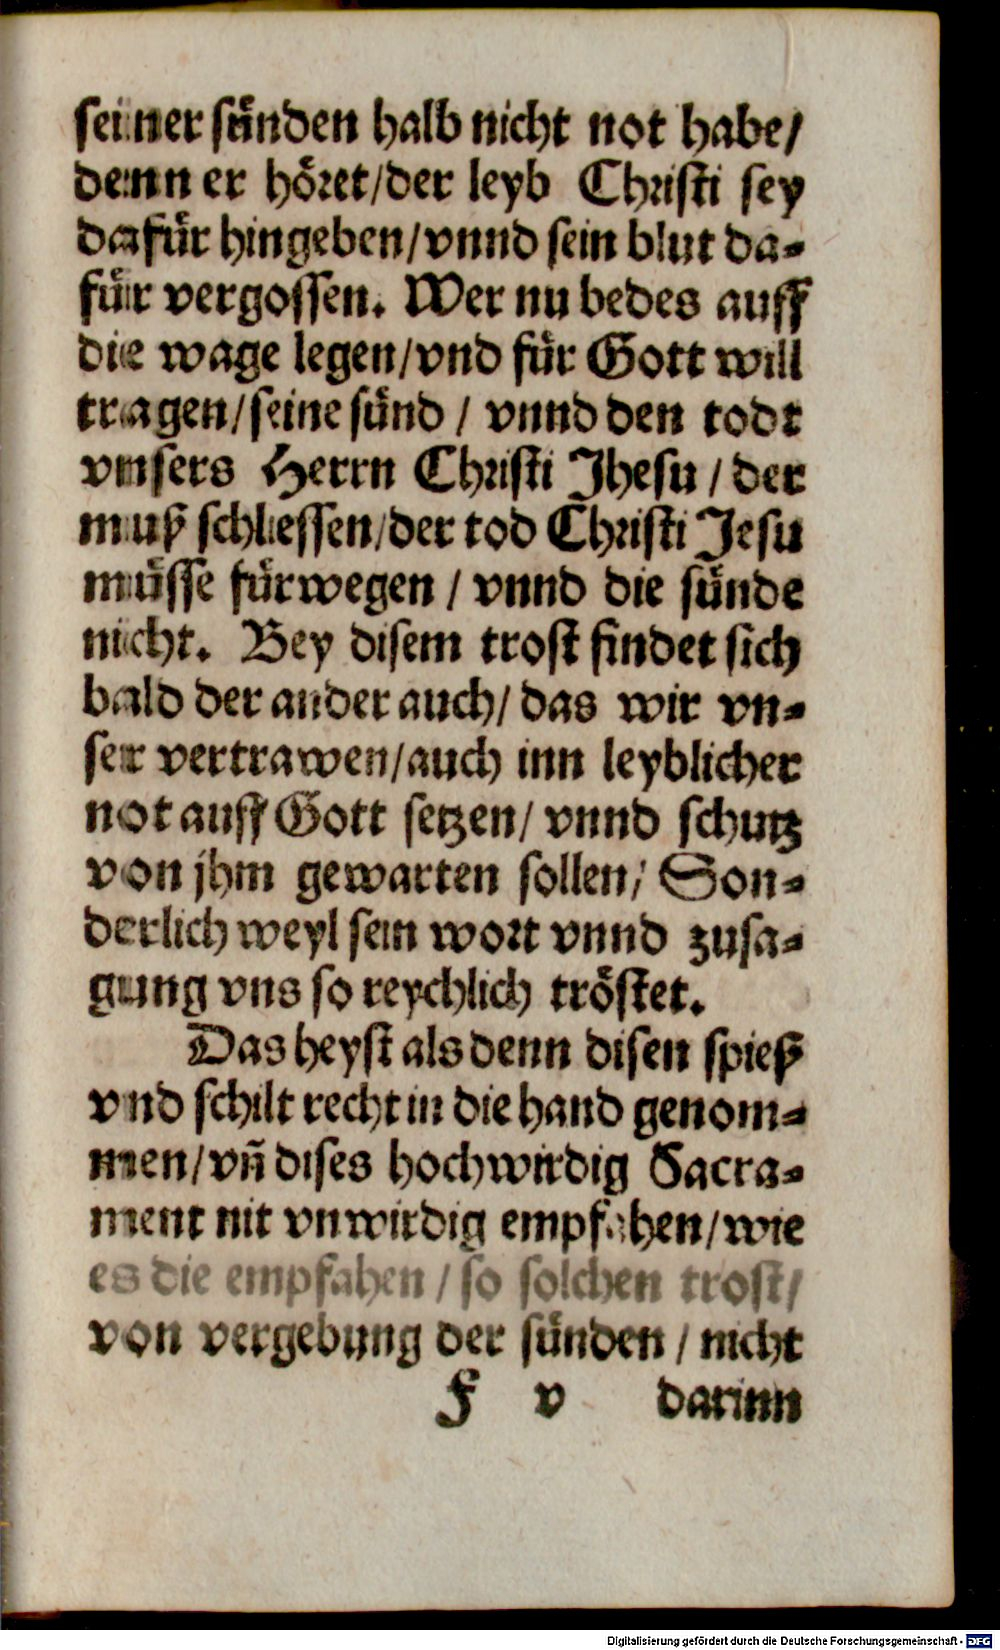 seiner sünden halb nicht not habe/
denn er höret/der leyb Christi sey
dafür hingeben/vnnd sein blut da-
für vergossen. Wer nu bedes auff
die wage legen/vnd für Gott will
tragen/seine sünd / vnnd den todt
vnsers Herrn Christi Jhesu / der
muß schliessen/der tod Christi Jesu
müsse fürwegen / vnnd die sünde
nicht. Bey disem trost findet sich
bald der ander auch/ das wir vn-
ser vertrawen/auch inn leyblicher
not auff Gott setzen/ vnnd schutz
von jhm gewarten sollen/ Son-
derlich weyl sein wort vnnd zusa-
gung vns so reychlich tröstet.
Das heyst als denn disen spieß
vnd schilt recht in die hand genom-
men/vñ dises hochwirdig Sacra-
ment nit vnwirdig empfahen/wie
es die empfahen / so solchen trost/
von vergebung der sünden / nicht
F v darinn
Digitalisierung gefördert durch die Deutsche Forschungsgemeinschaft - DFG